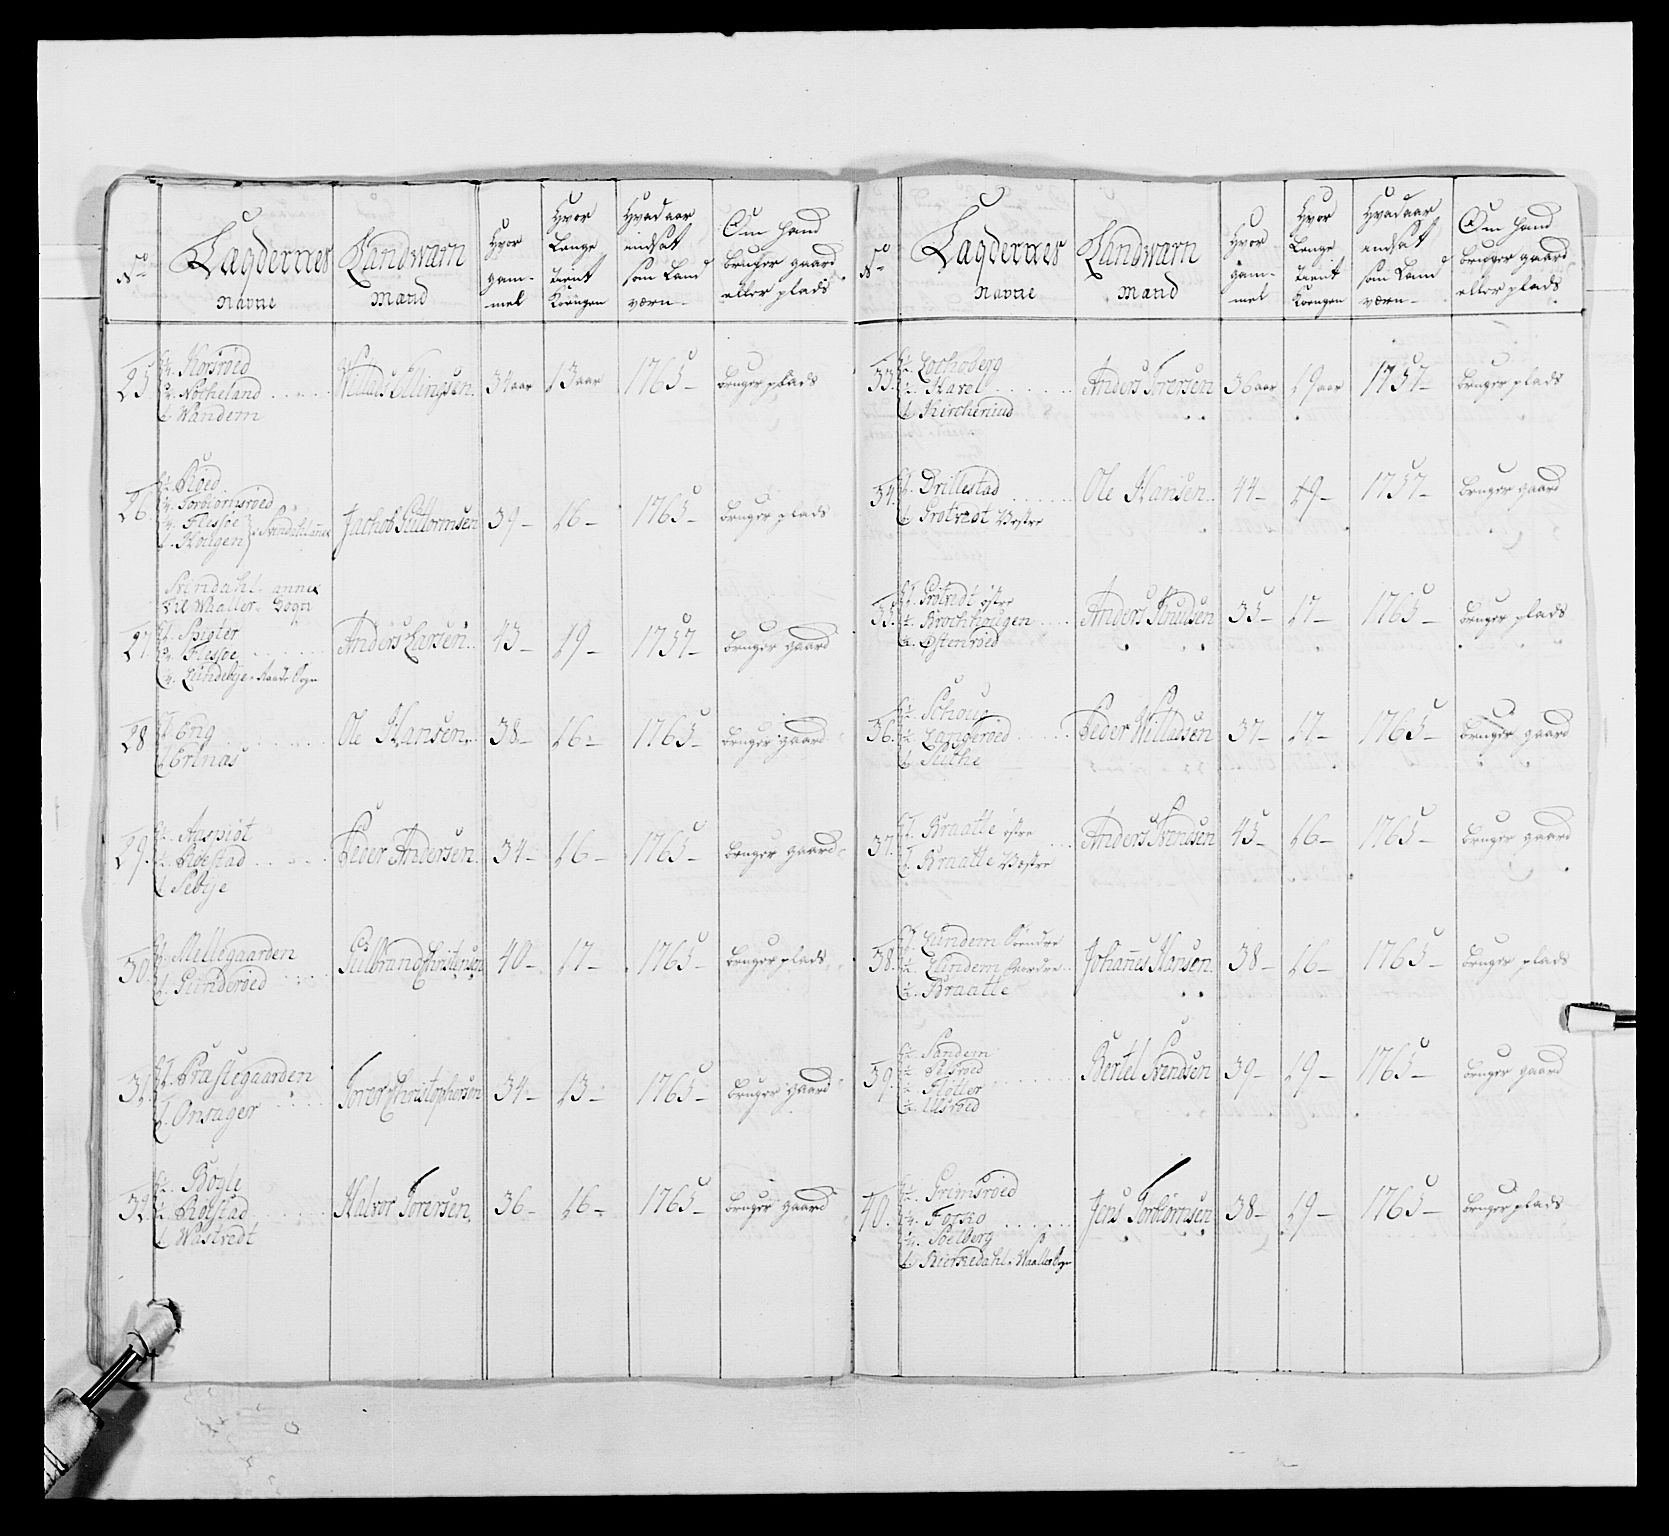 No
Lægdernes
Navne
Landwærn
Mand
Hvor
gam-
mel
Hvor
Lenge
tient
Kongen
Hvad aar
indsat
som Land
værn
Om hand
bruger gaard
eller plads
25. Korsrøed
Notheland
Wandem
Willads Ellingsen 34 aar 13 aar 1765 bruger plads
26. Røed
Torbiørnsrøed
Flesje
Hougen
Jachob Guttormsen 39 16 1765 bruger plads
Svindahl annex
til Whaller Sogn
27. Spigter
Flesje
Lundebye Raade Sogn
Anders Larsen 43 19 1757 bruger gaard
28. Eng
Ertnas
Ole Hansen 38 16 1765 bruger gaard
29. Aaspiøt
Røestad
Sebye
Peder Andersen 34 16 1765 bruger gaard
30. Mellegaarden
Gunderøed
Gulbrand Christensen 40 17 1765 bruger plads
31. Præstegaarden
Onsager
Torer Christophersen 34 13 1765 bruger gaard
32. Bøyle
Røestad
Wastvedt
Halvor Torersen 36 16 1765 bruger gaard
No
Lægdernes
Navne
Landwærn
Mand
Hvor
gam-
mel
Hvor
Lenge
tient
Kongen
Hvad aar
indsat
som Land
værn
Om hand
bruger gaard
eller plads
33. Lochoberg
Navel
Kircheruud
Anders Iversen 36 aar 19 aar 1757 bruger plads
34. Drillestad
Grøtvedt Vestre
Ole Hansen 44 19 1757 bruger gaard
35. Grøtvedt østre
Brochhougen
Østenrøed
Anders Knudsen 35 17 1765 bruger plads
36. Schoug
Langerøed
Tuthe
Peder Willadsen 37 17 1765 bruger gaard
37. Braatte østre
Braatte Vestre
Anders Svendsen 45 16 1765 bruger gaard
38. Lundem Søndre
Lundem Nordre
Braatte
Johannes Hansen 38 16 1765 bruger plads
39. Sandem
Flotter
Ulsrøed
Bertel Svendsen 39 19 1765 bruger gaard
40. Grimsrøed
Torko
Soelberg
Kierkedahl Waaller Sogn
Jens Torbiørnsen 38 19 1765 bruger plads